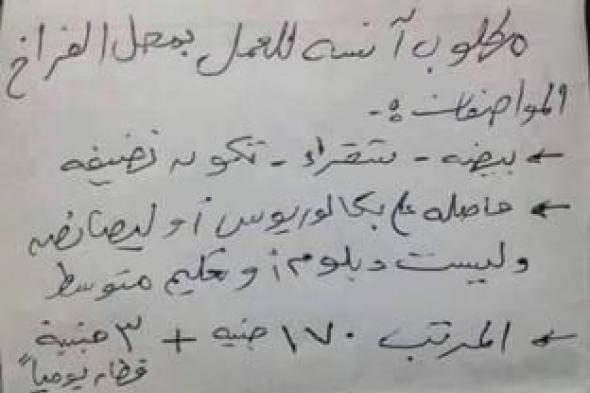 مطلوب آنسه للعمل بمحل الفراخ
المواصفات :-
← بيضه - شقراء - تكون نضيفه
← حاصله ع بكالوريوس أو ليصانصه
وليست دبلوم أو تعليم متوسط
← المرتب ١٧٠ جنيه + ٣ جنيه
فطار يومياً